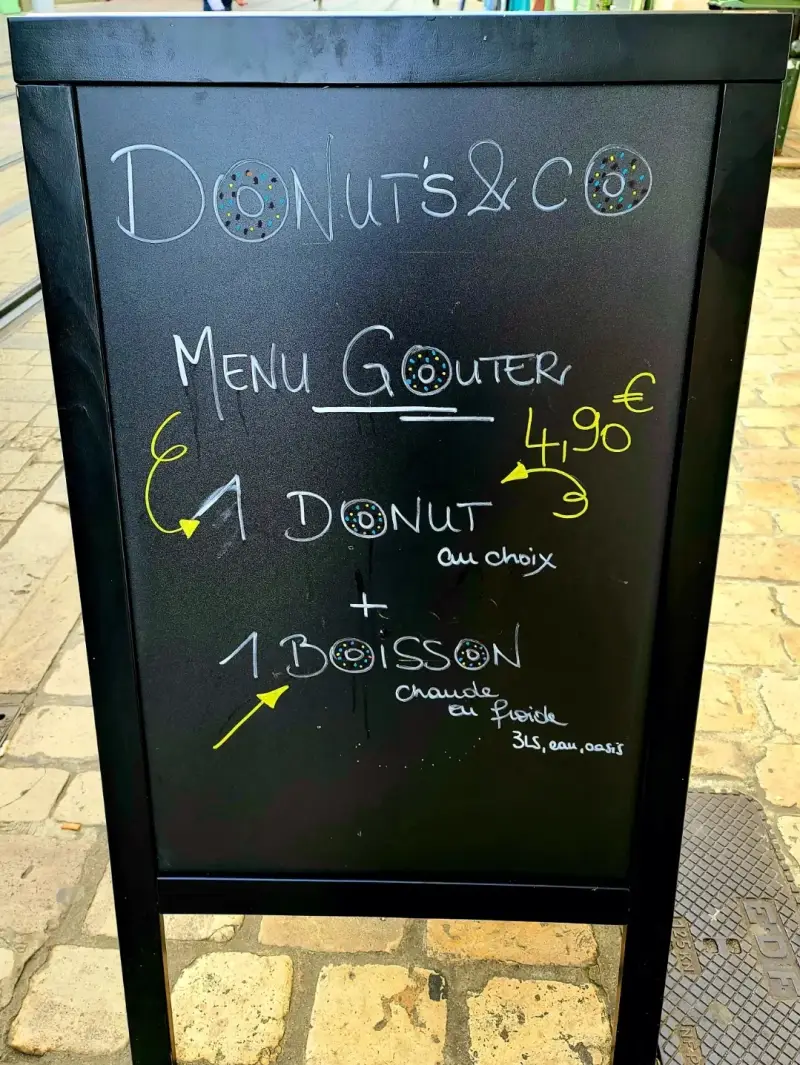 DONUT'S & CO
MENU GOUTER
4,90€
1 DONUT
au choix
+
1 BOISSON
chaude
ou froide
3LS, eau, oasis
EDF
125